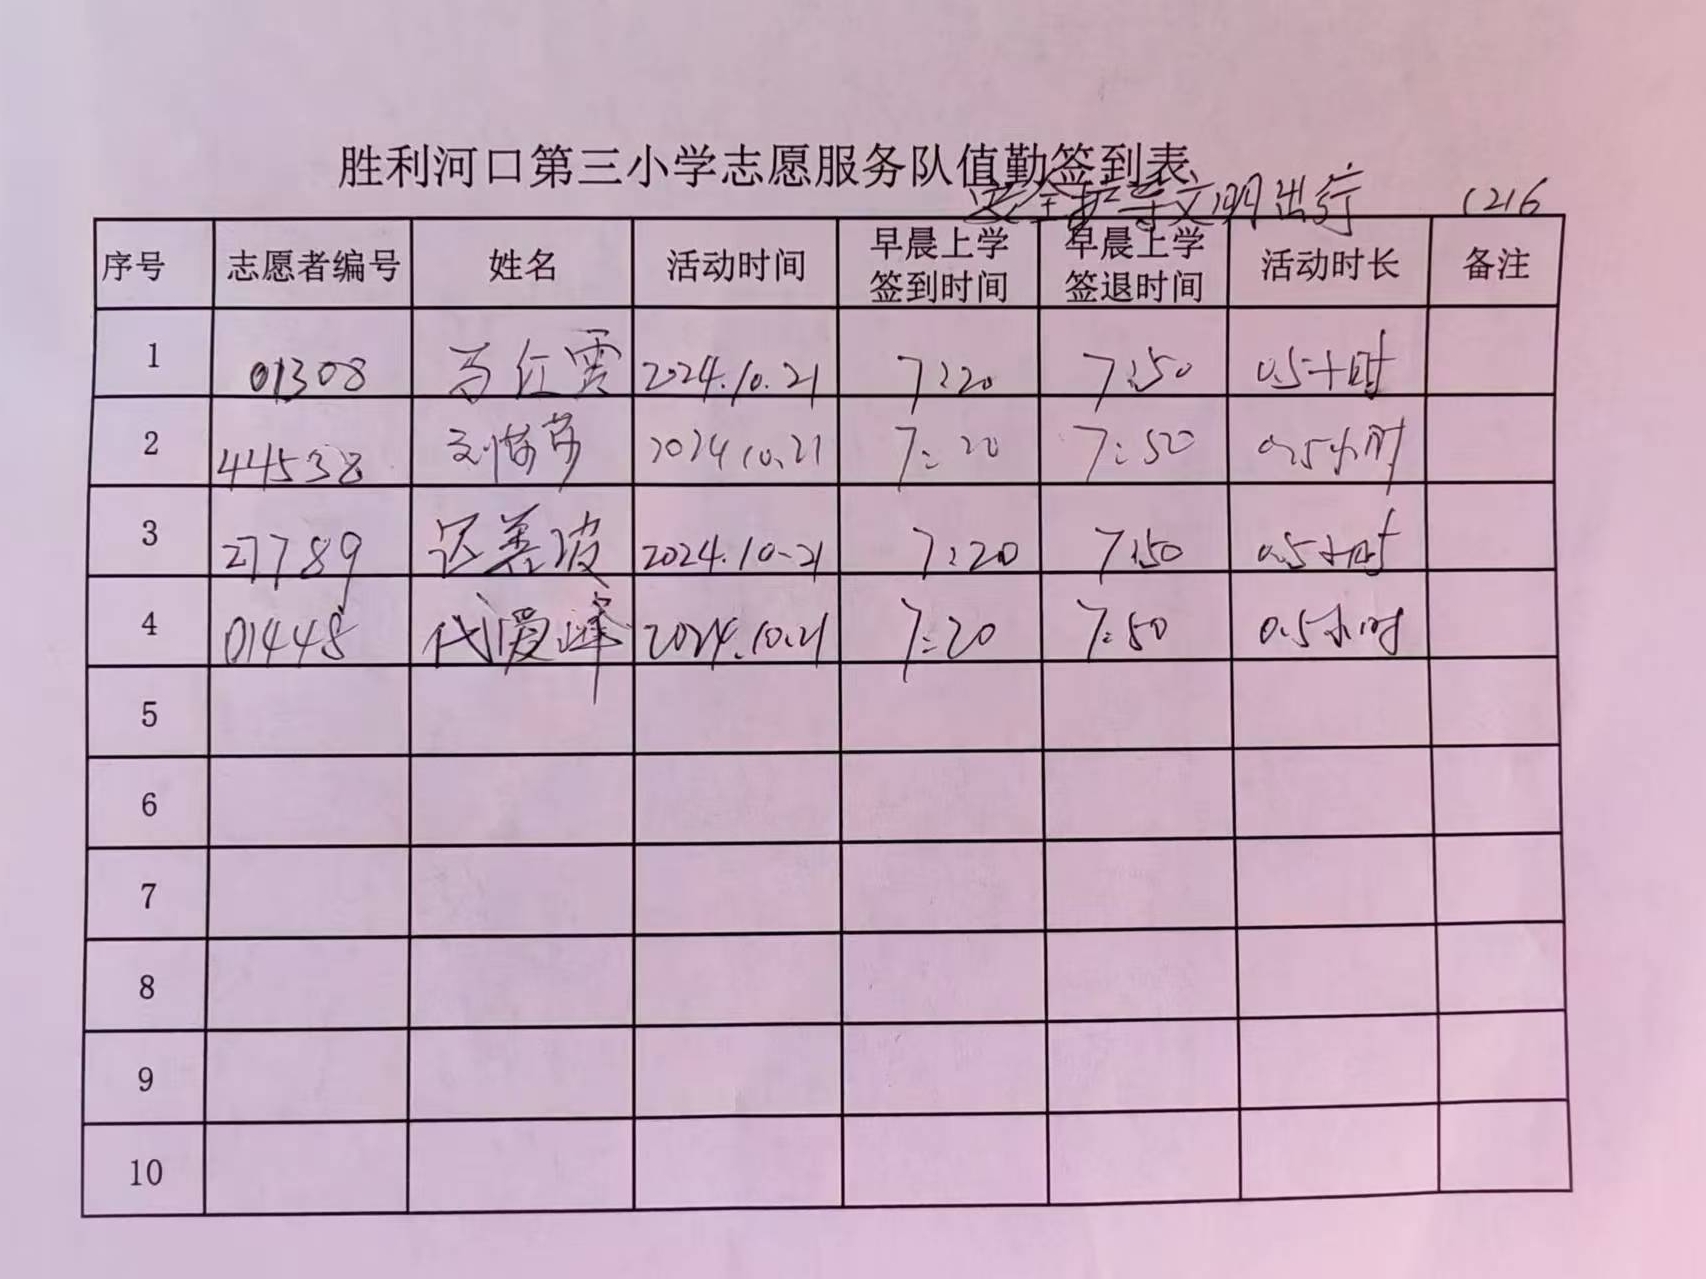 胜利河口第三小学志愿服务队值勤签到表
安全护导文明出行 1216
序号 志愿者编号 姓名 活动时间 早晨上学签到时间 早晨上学签退时间 活动时长 备注
1 01308 2024.10.21 7:20 7:50 0.5小时
2 44538 刘 2024.10.21 7:20 7:50 0.5小时
3 27789 2024.10-21 7:20 7:50 0.5小时
4 01448 代爱峰 2024.10.21 7:20 7:50 0.5小时
5
6
7
8
9
10